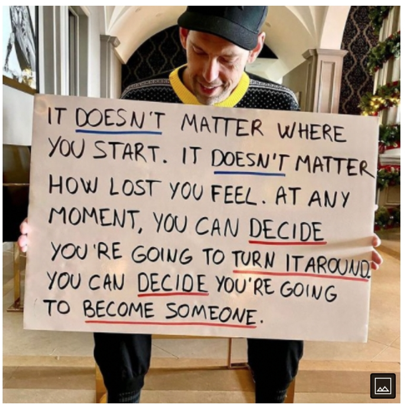 IT DOESN'T MATTER WHERE
YOU START. IT DOESN'T MATTER
HOW LOST YOU FEEL. AT ANY
MOMENT, YOU CAN DECIDE
YOU'RE GOING TO TURN IT AROUND
YOU CAN DECIDE YOU'RE GOING
TO BECOME SOMEONE.